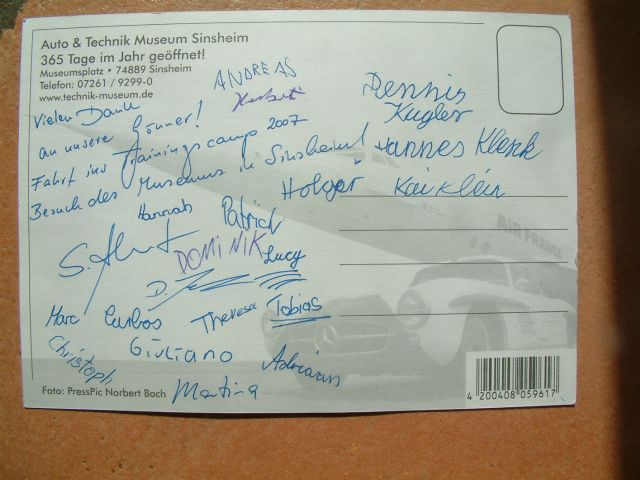 Auto & Technik Museum Sinsheim
365 Tage im Jahr geöffnet!
Museumsplatz • 74889 Sinsheim
Telefon: 07261 / 9299-0
www.technik-museum.de
Vielen Dank
an unsere Gönner!
Fahrt ins Trainingscamp 2007
Besuch des Museums in Sinsheim!
ANDREAS
Herbert
Dennis
Kugler
Hannes Klenk
Holger
Kai Klein
Hannah
Patrick
DOMINIK
Lucy
S.
D.
Marc
Carlos
Theresa
Tobias
Christoph
Giuliano
Adrian
Martina
AIR FRANCE
Foto: PressPic Norbert Bach
4 200408 059617